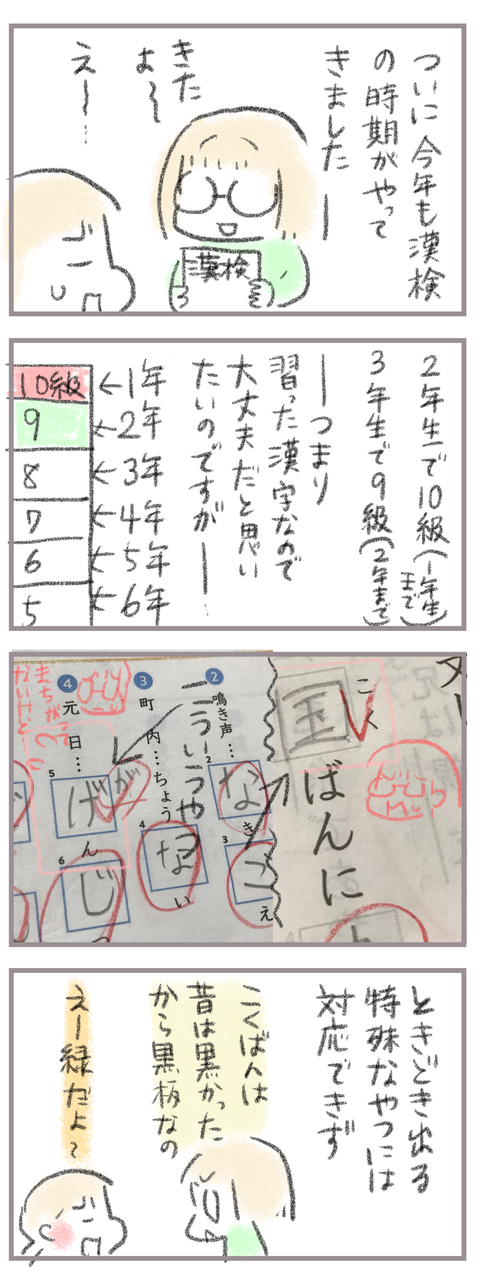 ついに今年も漢検
の時期がやって
きましたー
きた
よ〜
漢検
え〜…
2年生で10級(1年生まで)
3年生で9級(2年まで)
ーつまり
習った漢字なので
大丈夫だと思い
たいのですがー…
10級←1年
9←2年
8←3年
7←4年
6←5年
5←6年
こく
国
ばんに
②鳴き声…
2
な
き
3
ご
え
こういうやつ
③町内…ちょう
4
な
い
④元日…
5
が
げ
ん
6
じ
つ
まちがい
ときどき出る
特殊なやつには
対応できず
こくばんは
昔は黒かった
から黒板なの
えー緑だよ?